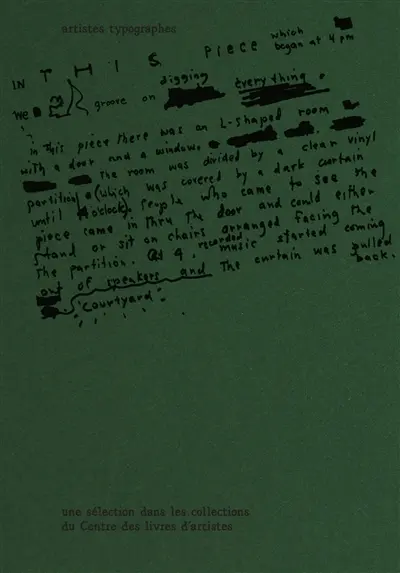 artistes typographes
IN THIS piece which began at 4 pm
we groove on digging everything.
in this piece there was an L-shaped room
with a door and a window
the room was divided by a clear vinyl
partition (which was covered by a dark curtain
until 4 o'clock). People who came to see the
piece came in thru the door and could either
stand or sit on chairs arranged facing the
the partition. At 4, recorded music started coming
out of speakers and the curtain was pulled back.
"Courtyard".
une sélection dans les collections
du Centre des livres d'artistes